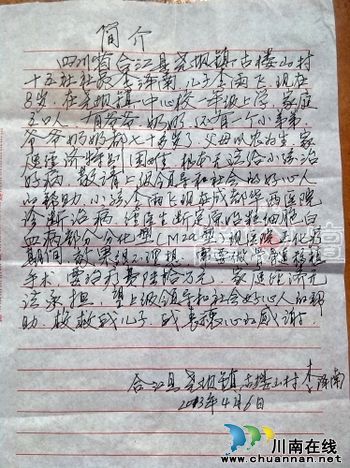 简介
四川省合江县尧坝镇古楼山村
十五社社员李泽南,儿子李雨飞,现在
8岁,在尧坝镇中心校一年级上学,家庭
五口人,有爷爷、奶奶,还有一个弟弟,
爷爷奶奶都七十多岁了,父母以农为生,家
庭经济特别困难,根本无法给小孩治
好病,敬请上级领导和社会的好心人
的帮助,小孩李雨飞现在成都华西医院
诊断治病,经医生断定为粒细胞白
血病部分分化型(M2a型)现医院正化疗
期间,效果很不理想,需要做骨髓移植
手术,要治疗费陆拾万元,家庭经济无
法承担,望上级领导和社会好心人的帮
助,救救我儿子,我表衷心的感谢!
合江县尧坝镇古楼山村 李泽南
2013年4月6日
川南在线
www.chuannan.net